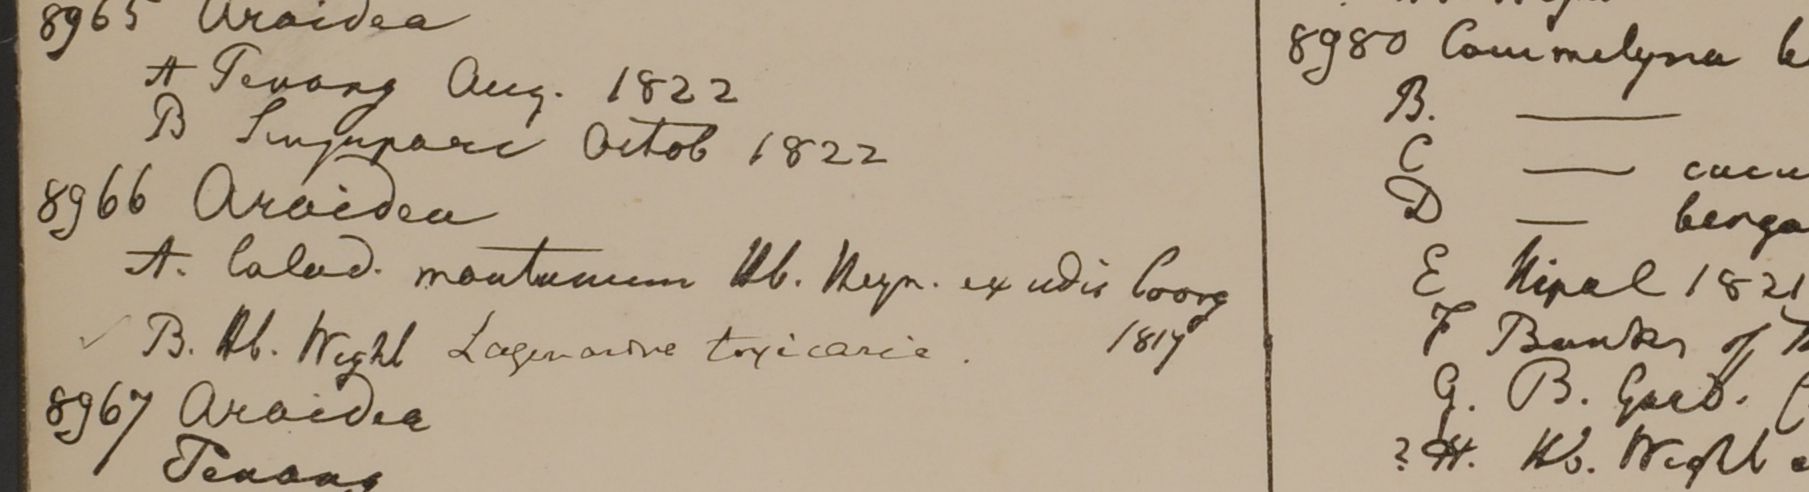 8965 Aroidea
A Penang Aug. 1822
B Singapore Octob 1822
8966 Aroidea
A. Calad. montanum Hb. Heyn. ex udis Coorg
1817
B. Hb. Wight Lagenandra toxicaria.
8967 Aroidea
Penang
8980 Commelyna be
B. ——
C —— cucu
D —— benga
E Nipal 1821
F Banks of
G. B. Gard.
? H. Hb. Wight